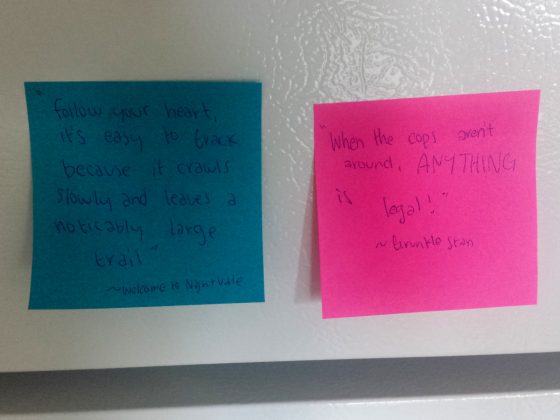 "follow your heart,
it's easy to track
because it crawls
slowly and leaves a
noticably large
trail"
~Welcome to Nightvale
"When the cops aren't
around, ANYTHING
is legal!"
~Grunkle Stan